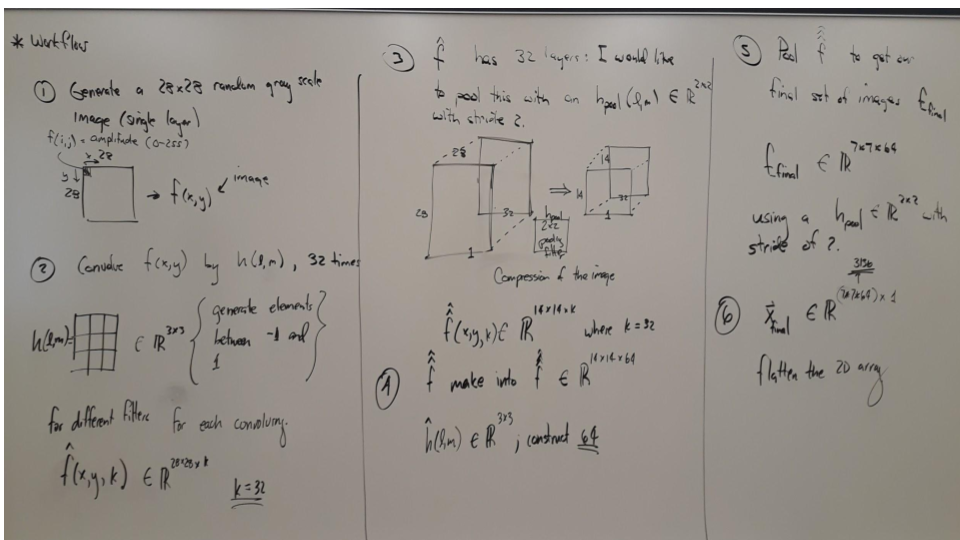 * Workflow
① Generate a 28×28 random gray scale
Image (single layer)
f(i,j) = amplitude (0-255)
x 28
y
28
→ f(x,y) ← image
② Convolve f(x,y) by h(l,m), 32 times
h(l,m)= ∈ ℝ^{3×3} { generate elements
between -1 and
1 }
for different filters for each convolving.
f̂(x,y,k) ∈ ℝ^{28×28×k}
k=32
③ f̂ has 32 layers: I would like
to pool this with an h_{pool}(l,m) ∈ ℝ^{2×2}
with stride 2.
28
28
32
1
⇒
14
14
32
1
h_{pool}
2×2
pooling
filter
Compression of the image
f̂̂(x,y,k) ∈ ℝ^{14×14×k} where k=32
④ f̂̂ make into f̂̂̂ ∈ ℝ^{14×14×64}
ĥ(l,m) ∈ ℝ^{3×3}; construct 64
⑤ Pool f̂̂̂ to get our
final set of images f_{final}
f_{final} ∈ ℝ^{7×7×64}
using a h_{pool} ∈ ℝ^{2×2} with
stride of 2.
3136
⑥ x⃗_{final} ∈ ℝ^{(7×7×64)×1}
flatten the 2D array